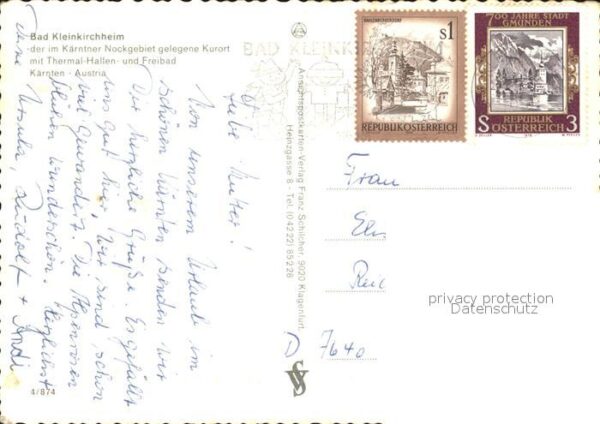 Bad Kleinkirchheim
der im Kärntner Nockgebiet gelegene Kurort
mit Thermal-Hallen- und Freibad
Kärnten - Austria
Liebe Mutter!
Von unserem Urlaub im
schönen Kärnten senden wir
Dir herzliche Grüße. Es gefällt
uns gut hier, wir sind schon
viel gewandert. Die Alpenrosen
blühen wunderschön. Herzlichst
Deine Ursula Rudolf + Andi
4/874
Ansichtspostkarten-Verlag Franz Schilcher, 9020 Klagenfurt,
Heinzgasse 8 - Tel. (0 42 22) 85 2 26
BAD KLEINKIRCH
S1
REPUBLIK ÖSTERREICH
700 JAHRE STADT
GMUNDEN
REPUBLIK
S ÖSTERREICH 3
Frau
Els
Reic
D 7640
privacy protection
Datenschutz